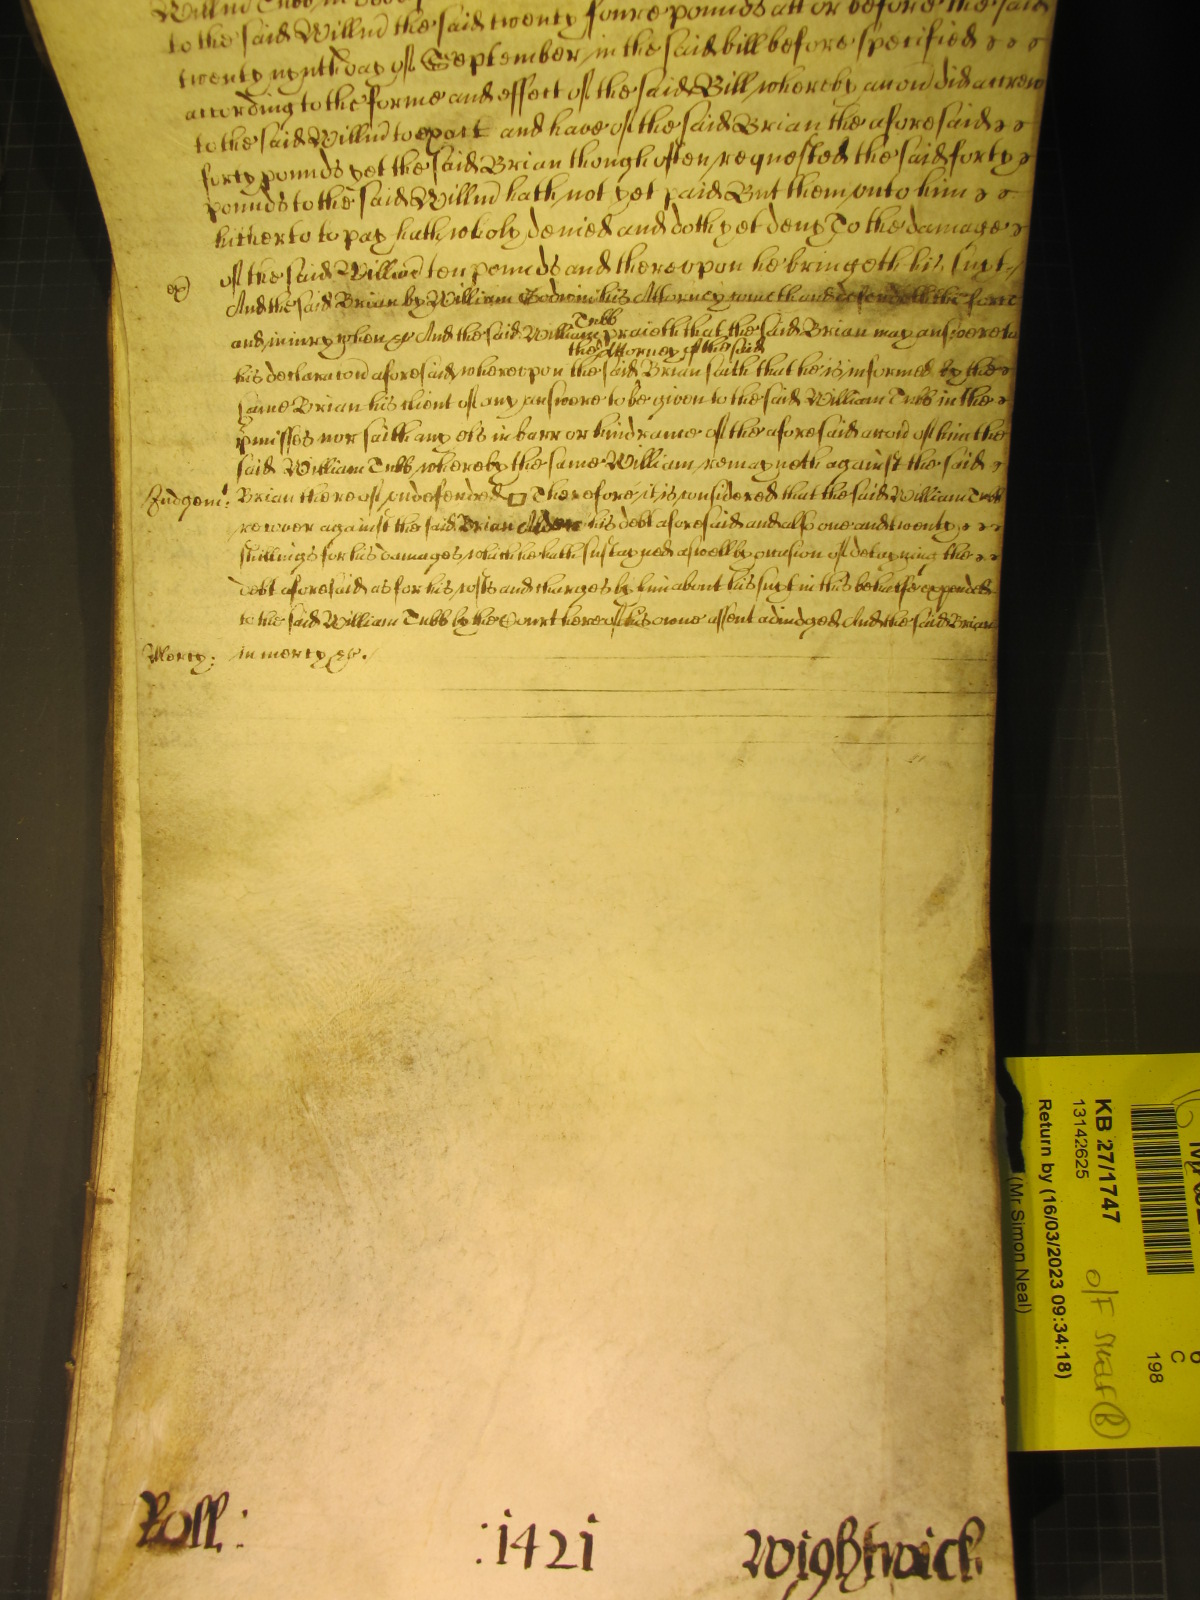 to the said Willm the said twenty foure pounds att or before the said
twenty nynth day of September in the said bill before specified
according to the forme and effect of the said Bill whereby an accon did accrew
to the said Willm to exact and have of the said Brian the aforesaid
forty pounds yet the said Brian though often requested the said forty
pounds to the said Willm hath not yet paid But them unto him
hitherto to pay hath wholy denied and doth yet deny To the damage
of the said Willm ten pounds and thereupon he bringeth his suyt
And the said Brian by William Godwin his Attorney cometh and defendeth the force
and iniury when &c And the said William Tubb praieth that the said Brian may answere to
his declaracon aforesaid whereupon the Attorney of the said the said Brian saith that he is informed by the
same Brian his client of any answere to be given to the said William Tubb in the
pmisses nor saith any els in barr or hindrance of the aforesaid accon of him the
said William Tubb whereby the same William remayneth against the said
Judgemt: Brian thereof undefended Therefore it is considered that the said William Tubb
recover against the said Brian his debt aforesaid and also one and twenty
shillings for his damages which he hath sustayned aswell by occasion of detayning the
debt aforesaid as for his costs and charges by him about his suyt in this behalfe expended
to the said William Tubb by the Court here of his owne assent adiudged And the said Brian
Mercy: in mercy &c.
Roll: :1421 Wightwick
KB 27/1747
13142625
Return by (16/03/2023 09:34:18)
(Mr Simon Neal)
O/F
C
198